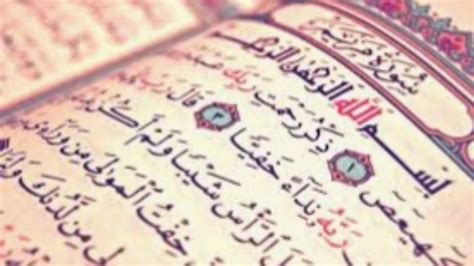 سُورَةُ مَرْيَمَ
بِسْمِ اللَّهِ الرَّحْمَٰنِ الرَّحِيمِ
كهيعص ١ ذِكْرُ رَحْمَتِ رَبِّكَ
رَبَّهُ نِدَاءً خَفِيًّا ٣ قَالَ رَبِّ
الرَّأْسُ شَيْبًا وَلَمْ أَكُن
خِفْتُ الْمَوَٰلِىَ مِن وَرَاءِى
مِن لَّدُنكَ